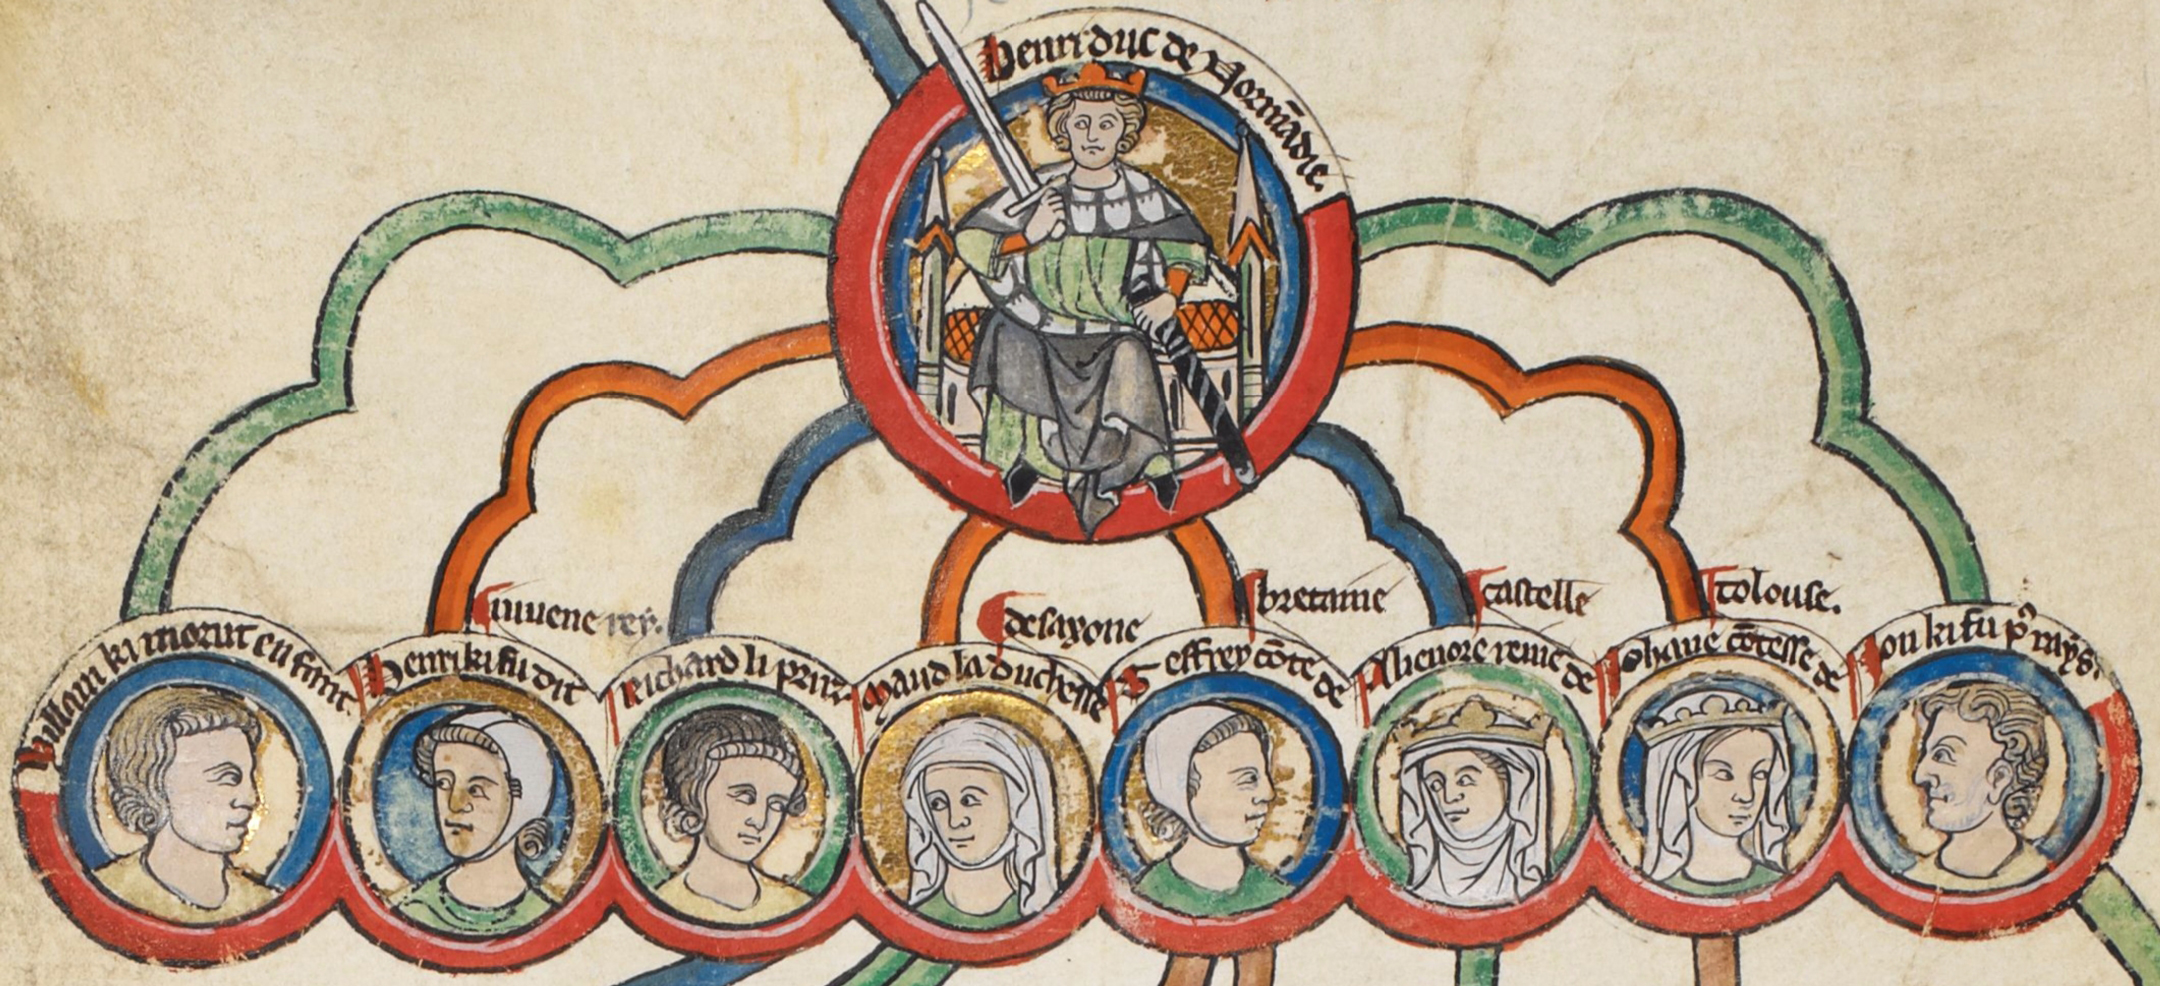 Henri duc de Normādie.
Willam ki morut enfant.
Henri ki fu dit
iuuene rey.
Richard li
Maud la duchesse
de saxone
Geffrey cōte de
bretaine
Alienore reine de
castelle
Iohane cōtesse de
tolouse.
Ion ki fu pʳ rays.